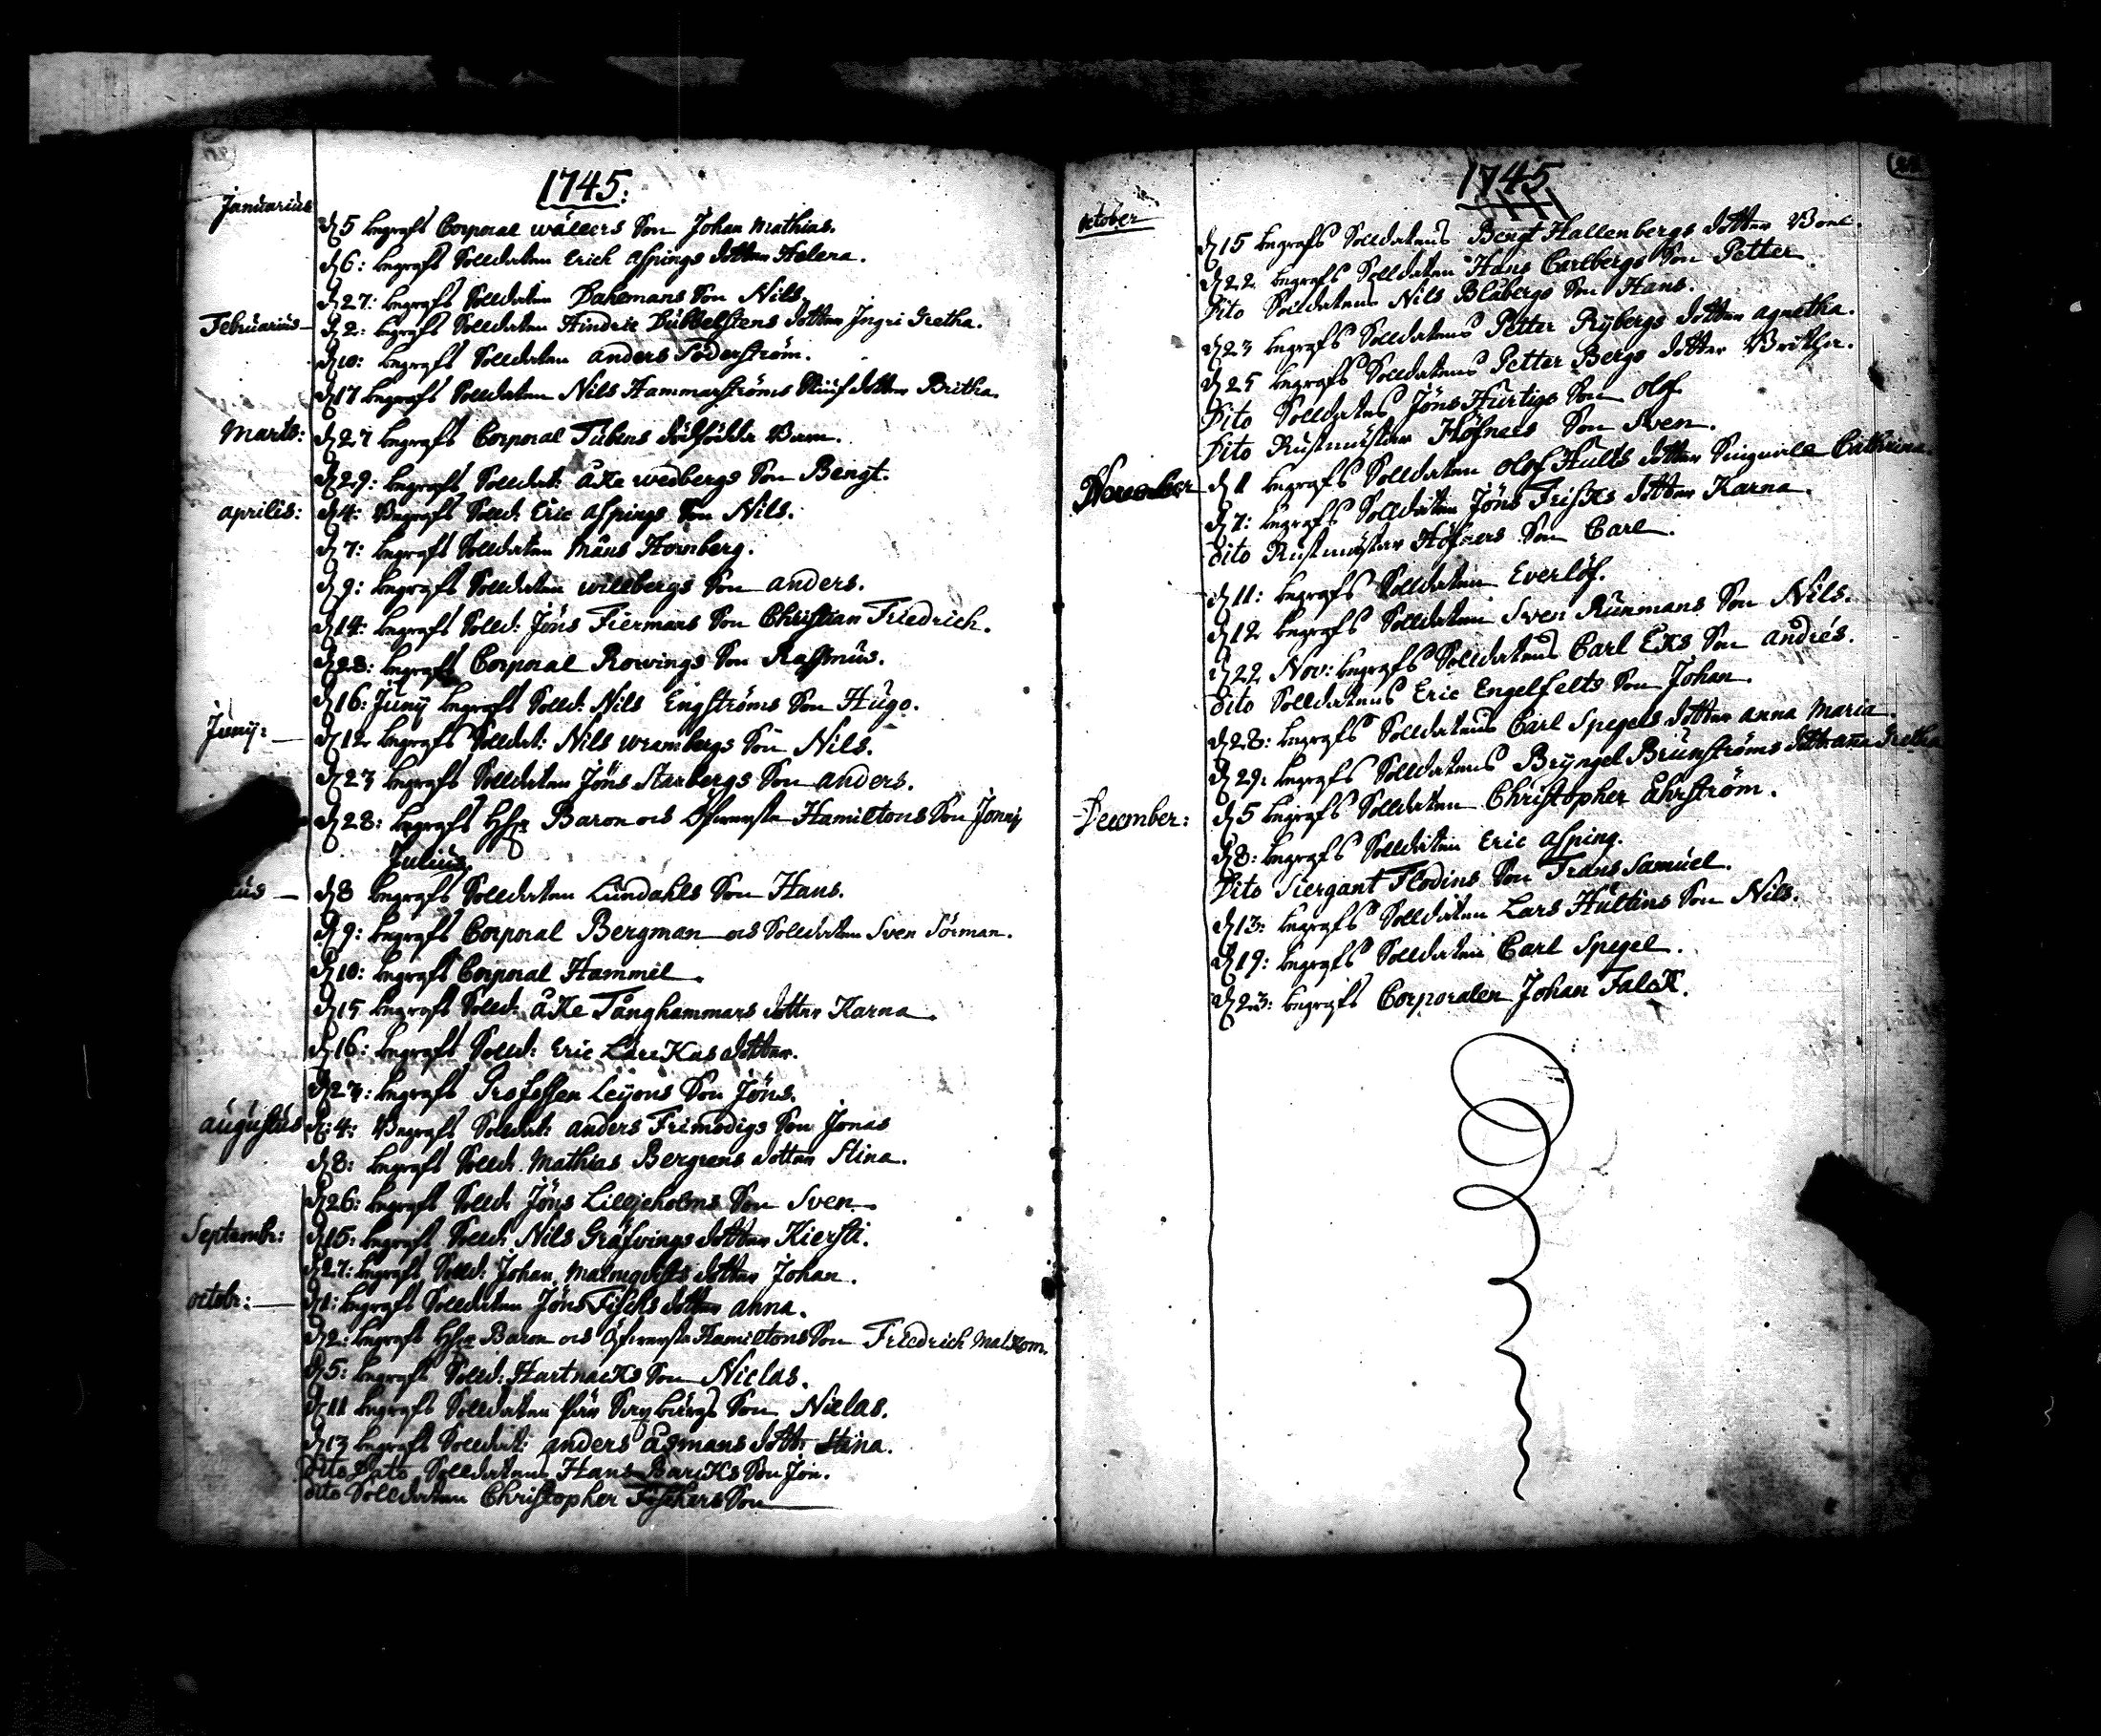 1745.
Januarius
d 5 begrafs Corporal wällers Son Johan Mathias.
d 6: begrafs Solldaten Erich Aspings dotter Helena.
d 27: begrafs Solldaten Dahlmans Son Nils.
Februarius d 2: begrafs Solldaten Hindric Dübbelstens dotter Ingri Gretha.
d 10: begrafs Solldaten anders Söderström.
d 17 begrafs Solldaten Nils Hammarströms dotter Britha.
Marts: d 27 begrafs Corporal Tübens dödfödda Barn.
d 29: begrafs Solldat: åKe wedbergs Son Bengt.
aprilis: d 4: Begrafs Solld: Eric aspings Son Nils.
d 7: begrafs Solldaten Måns Hornberg.
d 9: begrafs Solldaten willbergs Son anders.
d 14: begrafs Solld: Jöns Fiermans Son Christian Friedrich.
d 28: begrafs Corporal Rowings Son Rassmus.
d 16: Juny begrafs Solld: Nils Engströms Son Hugo.
Juny: d 12 begrafs Solldat: Nils wrambergs Son Nils.
d 23 begrafs Solldaten Jöns Starbergs Son anders.
d 28: begrafs Baron ock Öfwersta Hamiltons Son
Julius.
d 8 begrafs Solldaten Lundahls Son Hans.
d 9: begrafs Corporal Bergman ock Solldaten Sven Sörman.
d 10: begrafs Corporal Hammel.
d 15 begrafs Solld: åKe Tånghammars dotter Karna.
d 16: begrafs Solld: Eric LärcKas dotter.
d 23: begrafs Profossen Leyons Son Jöns.
augustus d: 4: Begrafs Soldat: anders Frimodigs Son Jonas
d 8: begrafs Solld: Mathias Bergrens dotter Stina.
d 26: begrafs Solld: Jöns Lilljeholms Son Sven
Septembr: d 15: begrafs Solld: Nils Gräfvings dotter Kiersti.
d 27: begrafs Solld: Johan Malmqvists dotter Johan.
octobr: d 1: begrafs Solldaten Jöns Fischs dotter anna.
d 2: begrafs Baron ock Öfwersta Hamiltons Son Friedrich MalKom.
d 5: begrafs Solld: HartnacKs Son Niclas.
d 11 begrafs Solldaten Son Niclas.
d 13 begrafs Solldat: anders Ågmans dottr Stina.
Dito Dato Solldatens Hans BarcKs Son Jon.
dito Solldaten Christopher Fischers Son
1745
October
d 15 begrafs Solldatens Bengt Hallenbergs dotter Boel.
d 22 begrafs Solldaten Hans Carlbergs Son Petter
Dito Solldatens Nils Blåbergs Son Hans.
d 23 begrafs Solldatens Petter Rybergs dotter agnetha.
d 25 begrafs Solldatens Petter Bergs dotter Britha.
Dito Solldatens Jöns Hurtigs Son Olof.
Dito Rustmästar Höfners Son Sven.
November d 1 begrafs Solldaten olof Hults dotter Cathrina
d 7: begrafs Solldaten Jöns FrisKs dotter Karna.
Dito Rustmästar Höfners Son Carl.
d 11: begrafs Solldaten Everlöf.
d 12 begrafs Solldaten Sven Runmans Son Nils.
d 22 Nov: begrafs Solldatens Carl EKs Son andrés.
Dito Solldatens Eric Engelfelts Son Johan.
d 28: begrafs Solldatens Carl Spegels dotter anna Maria
d 29: begrafs Solldatens Bryngel Brunströms dotter aña Gretha
December: d 5 begrafs Solldaten Christopher åhrström.
d 8: begrafs Solldaten Eric asping.
Dito Siergant Flodins Son Frans Samuel.
d 13: begrafs Solldaten Lars Hultins Son Nils.
d 19: begrafs Solldaten Carl Spegel.
d 23: begrafs Corporalen Johan FalcK.